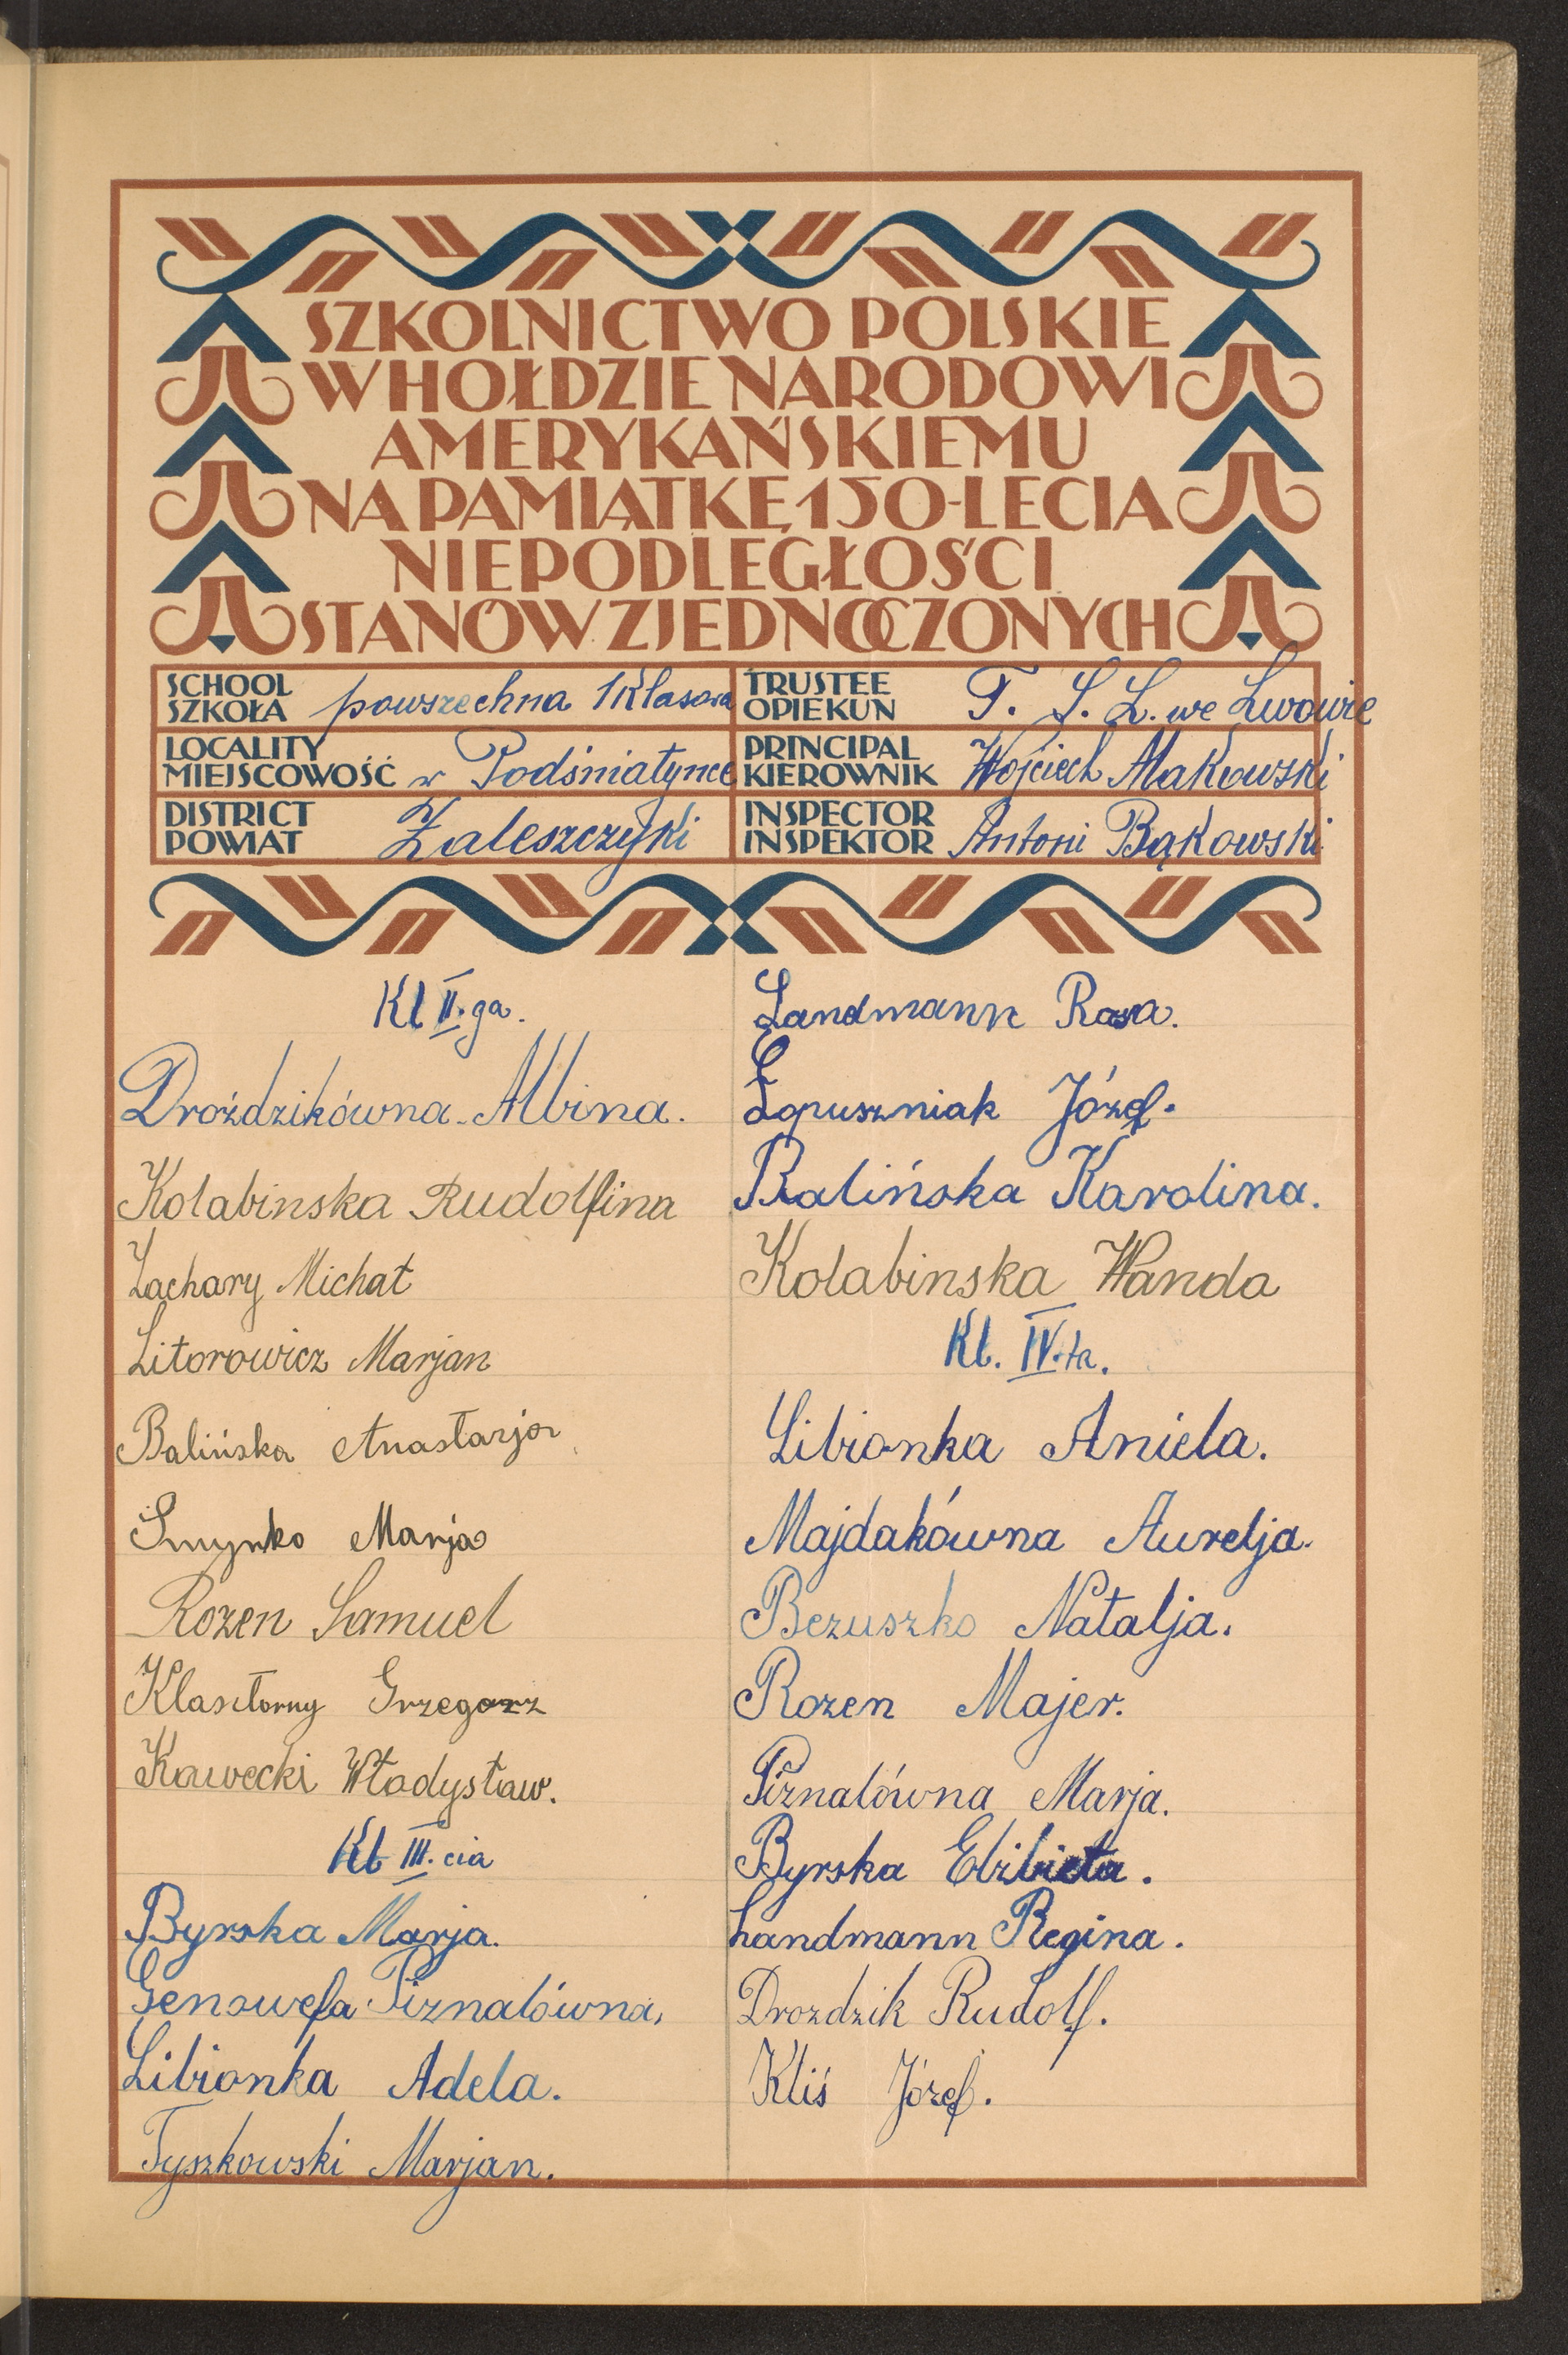 SZKOLNICTWO POLSKIE
W HOŁDZIE NARODOWI
AMERYKAŃSKIEMU
NA PAMIĄTKĘ 150-LECIA
NIEPODLEGŁOŚCI
STANÓW ZJEDNOCZONYCH
SCHOOL
SZKOŁA powszechna 1 klasowa
TRUSTEE
OPIEKUN T. S. L. we Lwowie
LOCALITY
MIEJSCOWOŚĆ w Podśniatynce
PRINCIPAL
KIEROWNIK Wojciech Makowski
DISTRICT
POWIAT Zaleszczyki
INSPECTOR
INSPEKTOR Antoni Bąkowski
Kl II. ga.
Droździkówna Albina.
Kolabinska Rudolfina
Zachary Michał
Litorowicz Marjan
Balińska Anastazja
Smynko Marja
Rozen Samuel
Klasztorny Grzegorz
Kawecki Władysław.
Kl III. cia
Byrska Marja.
Genowefa Piznalówna,
Libionka Adela.
Tyszkowski Marjan.
Landmann Roza.
Łopuszniak Józef.
Balińska Karolina.
Kolabinska Wanda
Kl. IV. ta.
Libionka Aniela.
Majdakówna Aurelja.
Bezuszko Natalja.
Rozen Majer.
Piznalówna Marja.
Byrska Elżbieta.
Landmann Regina.
Drozdzik Rudolf.
Kliś Józef.